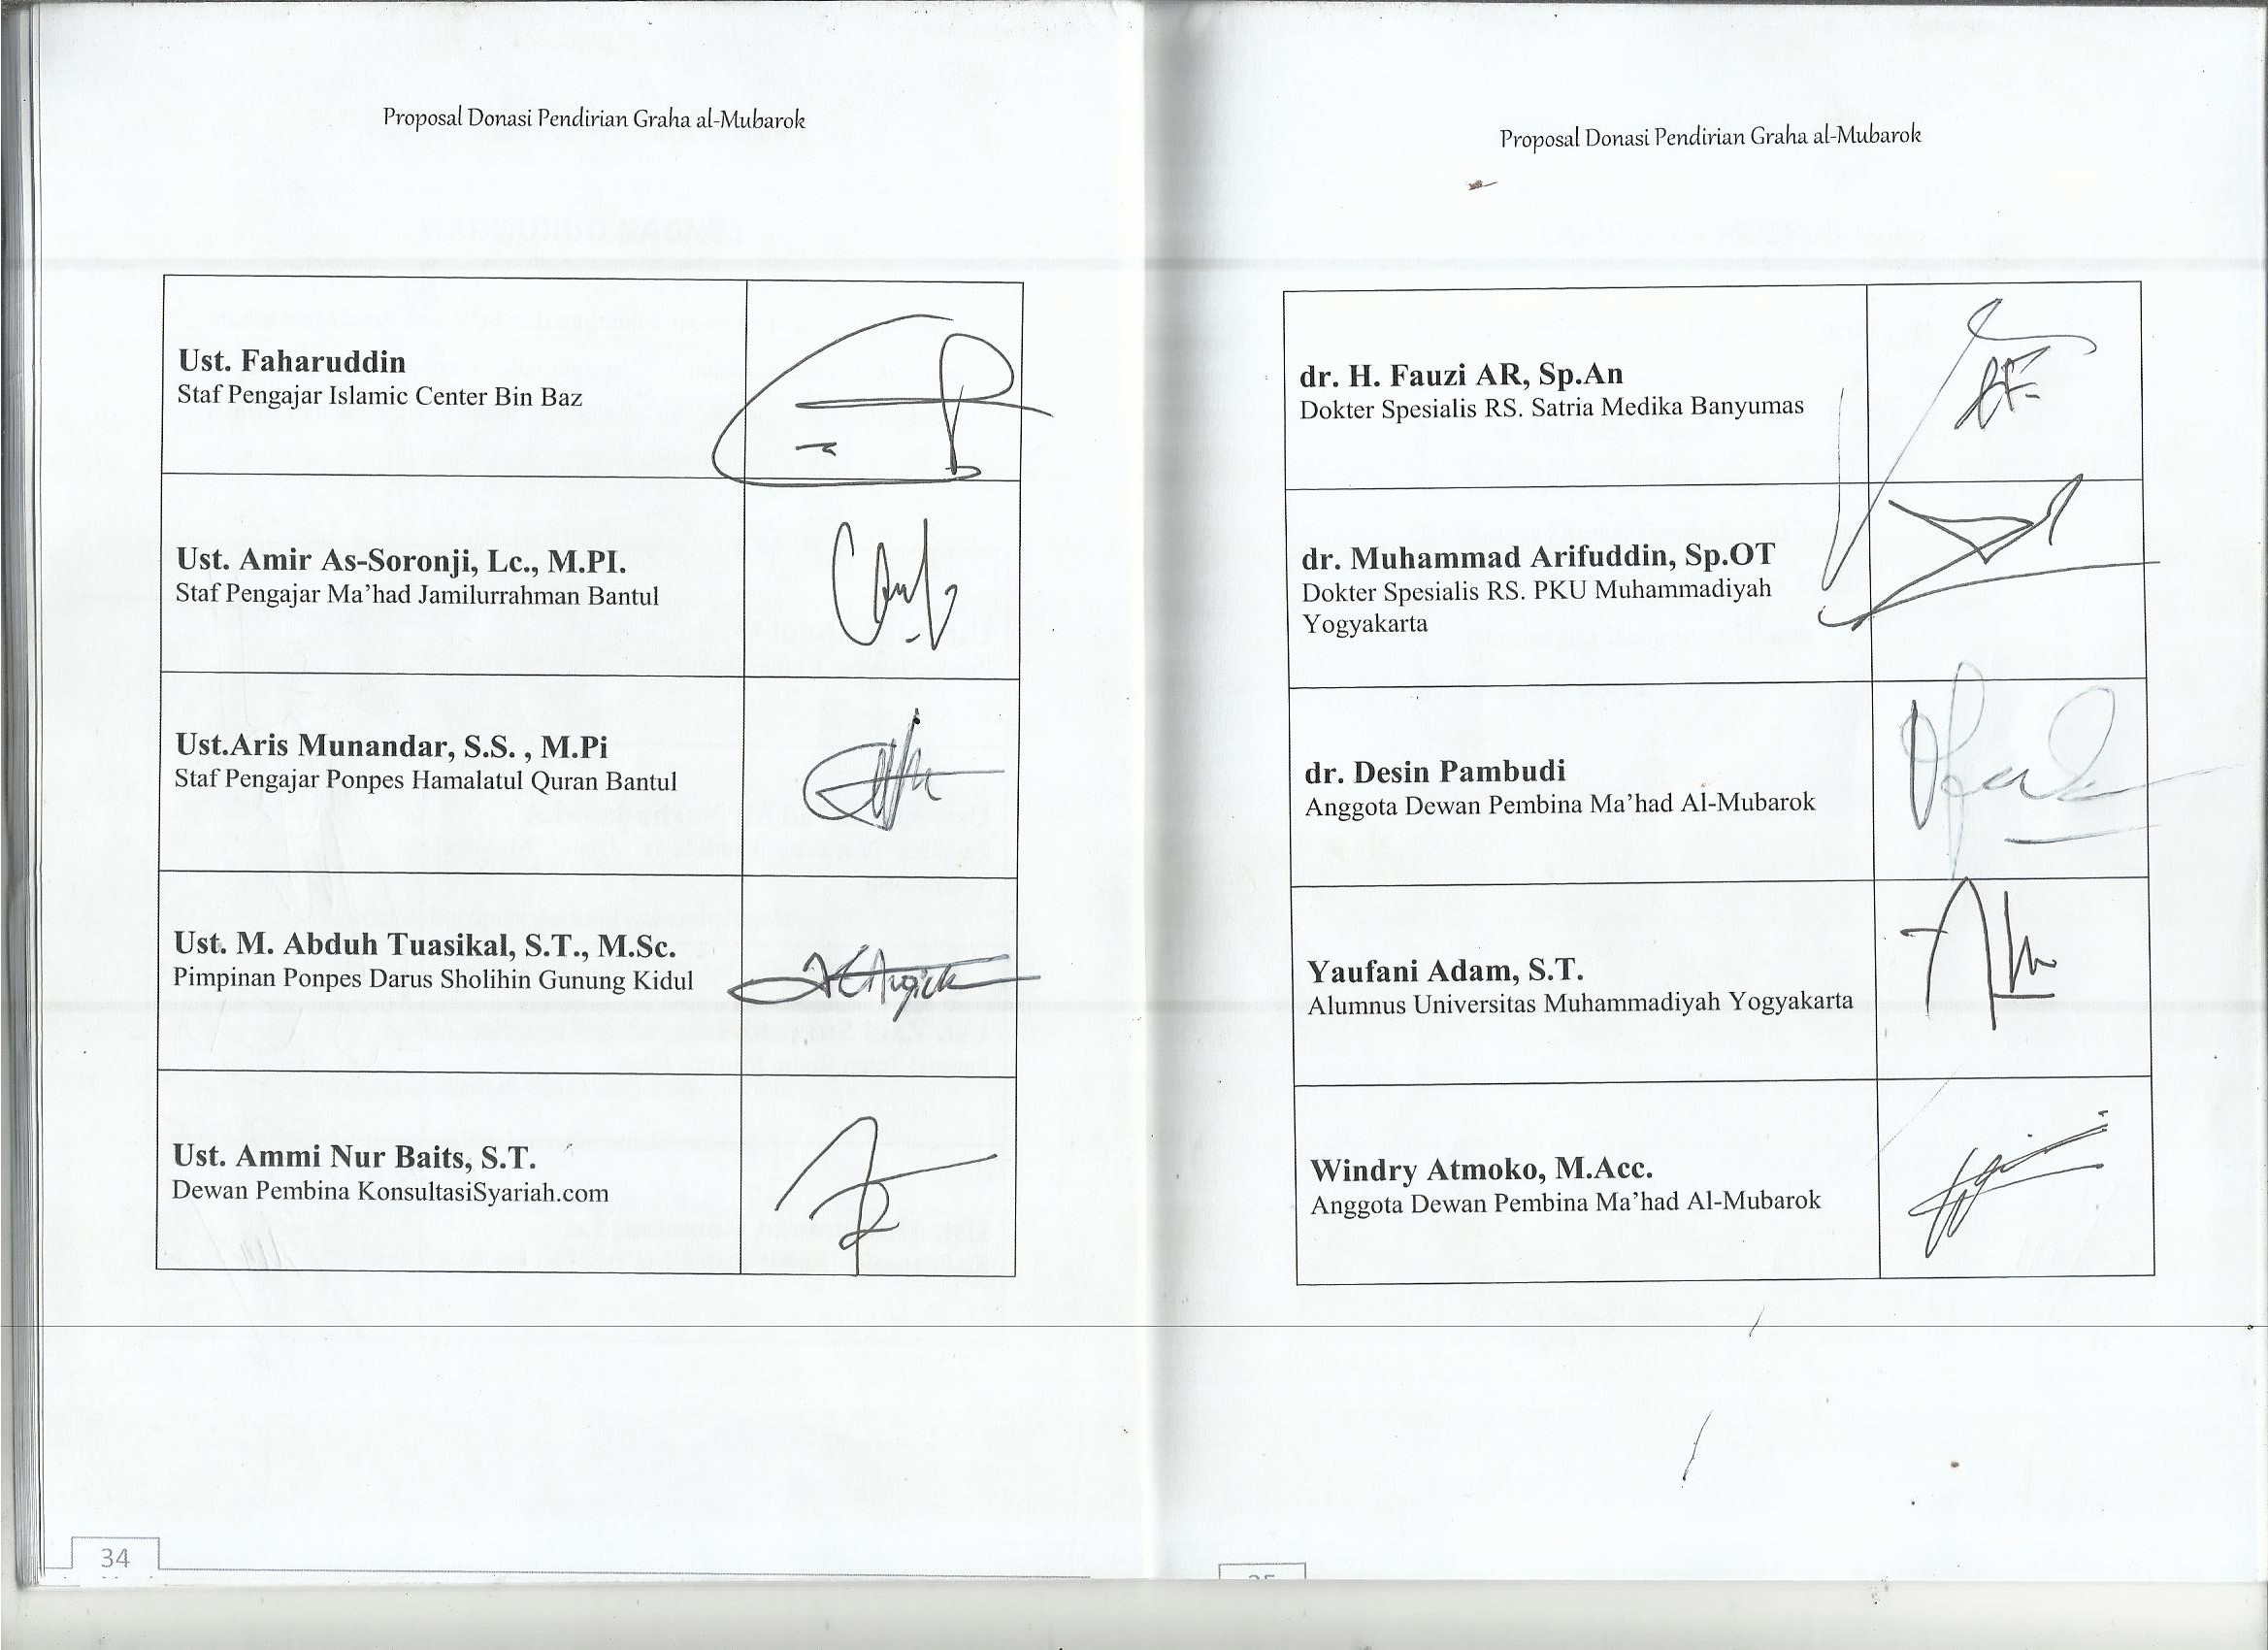 Proposal Donasi Pendirian Graha al-Mubarok
Ust. Faharuddin
Staf Pengajar Islamic Center Bin Baz
Ust. Amir As-Soronji, Lc., M.PI.
Staf Pengajar Ma'had Jamilurrahman Bantul
Ust.Aris Munandar, S.S. , M.Pi
Staf Pengajar Ponpes Hamalatul Quran Bantul
Ust. M. Abduh Tuasikal, S.T., M.Sc.
Pimpinan Ponpes Darus Sholihin Gunung Kidul
Ust. Ammi Nur Baits, S.T.
Dewan Pembina KonsultasiSyariah.com
34
Proposal Donasi Pendirian Graha al-Mubarok
dr. H. Fauzi AR, Sp.An
Dokter Spesialis RS. Satria Medika Banyumas
dr. Muhammad Arifuddin, Sp.OT
Dokter Spesialis RS. PKU Muhammadiyah
Yogyakarta
dr. Desin Pambudi
Anggota Dewan Pembina Ma'had Al-Mubarok
Yaufani Adam, S.T.
Alumnus Universitas Muhammadiyah Yogyakarta
Windry Atmoko, M.Acc.
Anggota Dewan Pembina Ma'had Al-Mubarok